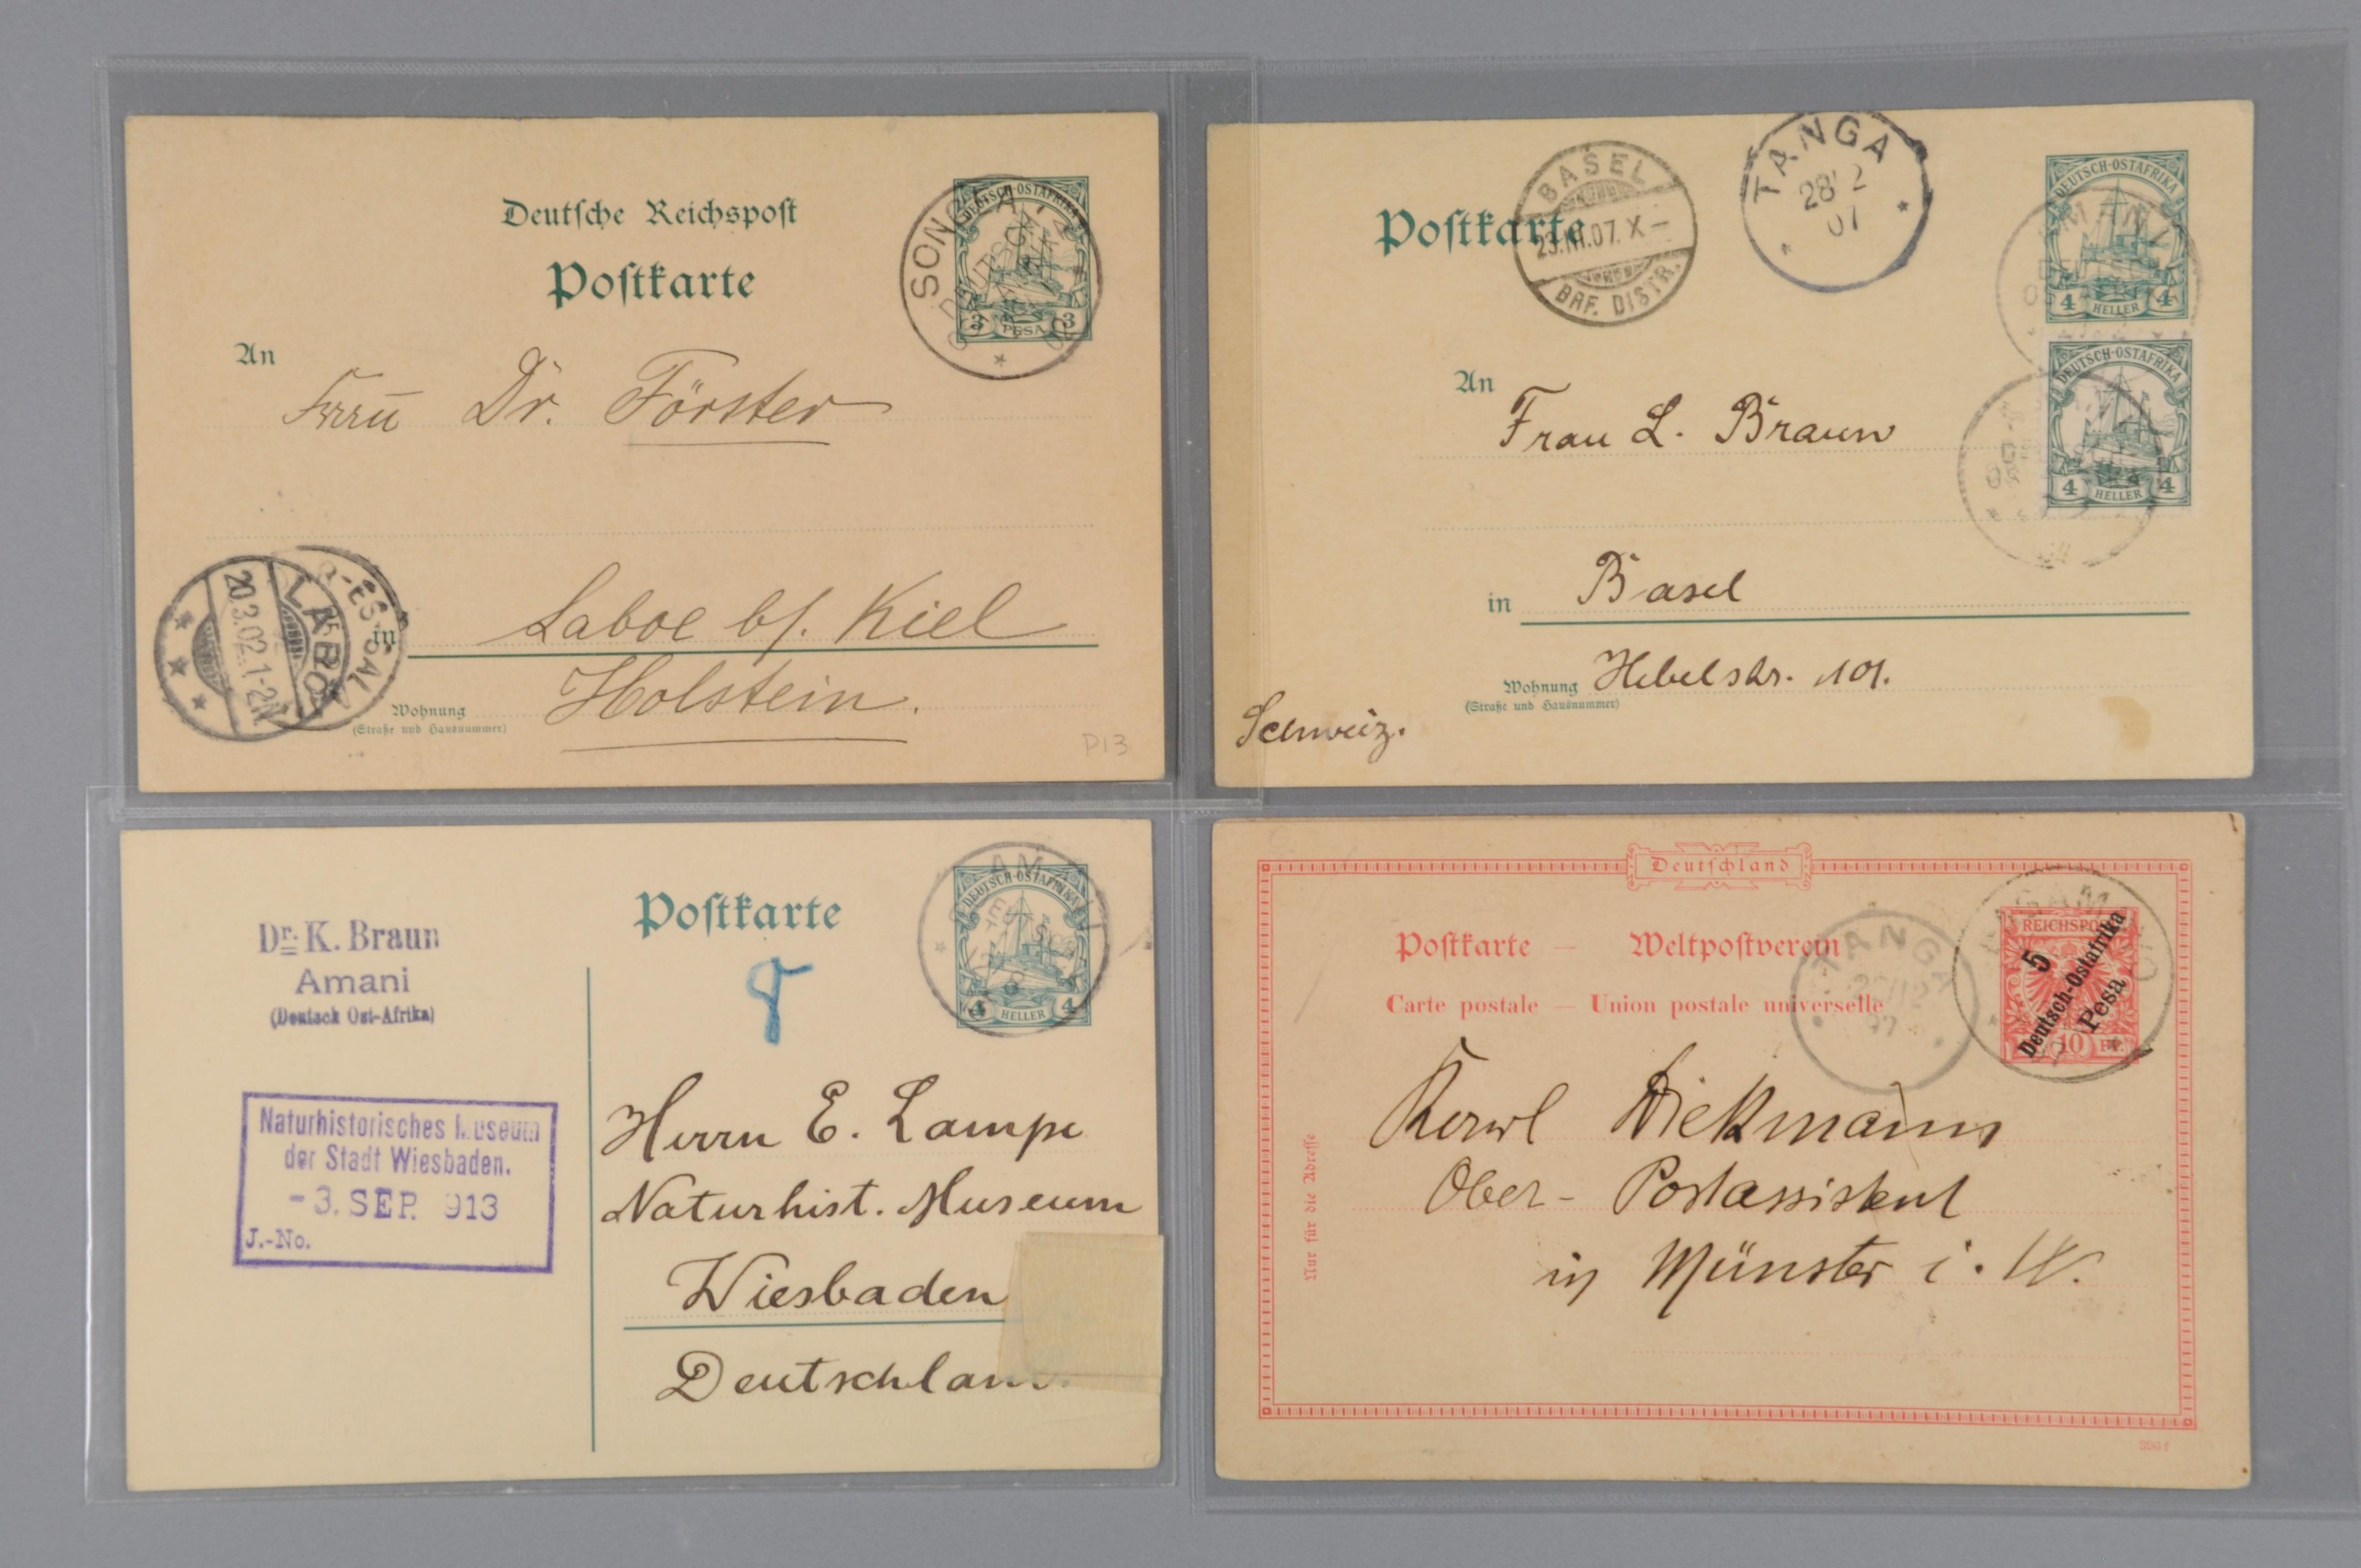 Deutsche Reichspost
Postkarte
DEUTSCH-OSTAFRIKA
3 PESA 3
SONGEA
An
Dr. Förster
in Laboe b/. Kiel
Holstein.
Wohnung
(Straße und Hausnummer)
LABOE
20.3.02.1-2N
P13
Postkarte
BASEL
23.III.07.X-
BRF. DISTR.
TANGA
28 2
07
DEUTSCH-OSTAFRIKA
4 HELLER 4
AMANI
DEUTSCH-OSTAFRIKA
4 HELLER 4
An Frau L. Braun
in Basel
Wohnung Hebelstr. 101.
(Straße und Hausnummer)
Schweiz.
Dr. K. Braun
Amani
(Deutsch Ost-Afrika)
Naturhistorisches Museum
der Stadt Wiesbaden.
-3. SEP. 913
J.-No.
Postkarte
AMANI
DEUTSCH-OSTAFRIKA
4 HELLER 4
Herrn E. Lampe
Naturhist. Museum
Wiesbaden
Deutschland.
Deutschland
Postkarte — Weltpostverein
Carte postale — Union postale universelle
TANGA
REICHSPOST
5
Deutsch-Ostafrika
Pesa
10 PF.
Diekmann
Ober-Postassistent
in Münster i. W.
Nur für die Adresse